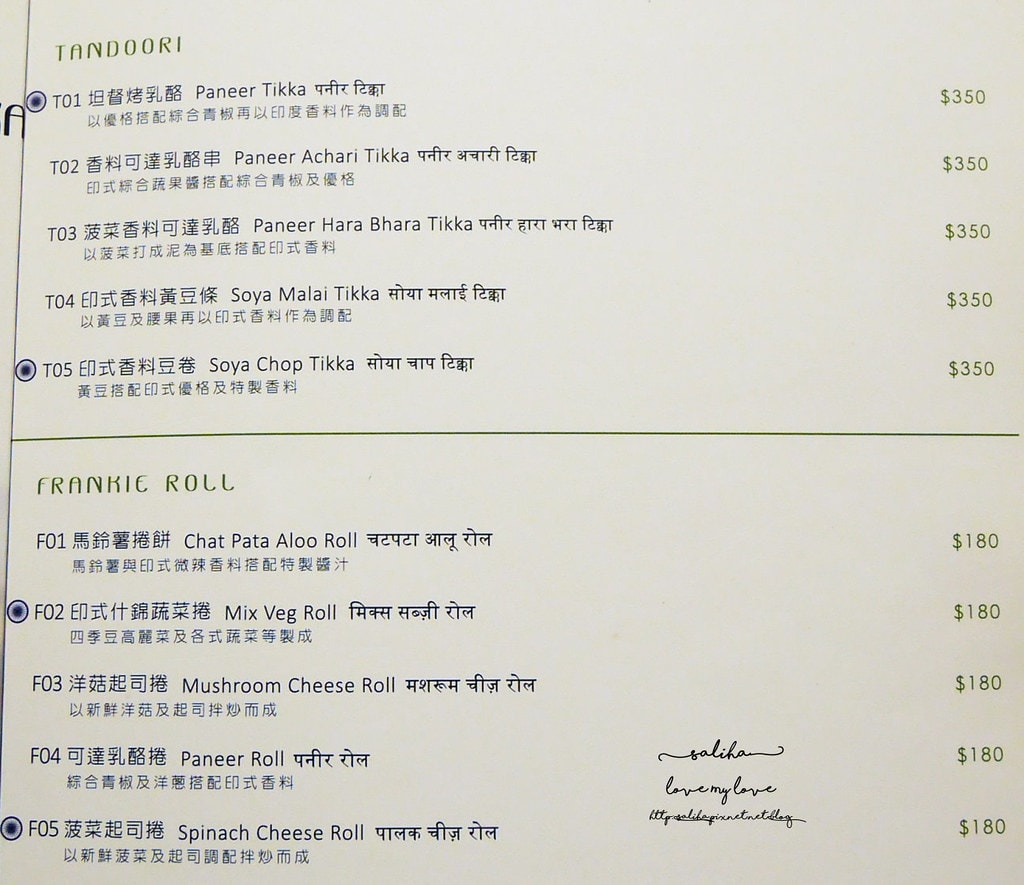 TANDOORI
T01 坦督烤乳酪 Paneer Tikka पनीर टिक्का $350
以優格搭配綜合青椒再以印度香料作為調配
T02 香料可達乳酪串 Paneer Achari Tikka पनीर अचारी टिक्का $350
印式綜合蔬果醬搭配綜合青椒及優格
T03 菠菜香料可達乳酪 Paneer Hara Bhara Tikka पनीर हारा भरा टिक्का $350
以菠菜打成泥為基底搭配印式香料
T04 印式香料黃豆條 Soya Malai Tikka सोया मलाई टिक्का $350
以黃豆及腰果再以印式香料作為調配
T05 印式香料豆卷 Soya Chop Tikka सोया चाप टिक्का $350
黃豆搭配印式優格及特製香料
FRANKIE ROLL
F01 馬鈴薯捲餅 Chat Pata Aloo Roll चटपटा आलू रोल $180
馬鈴薯與印式微辣香料搭配特製醬汁
F02 印式什錦蔬菜捲 Mix Veg Roll मिक्स सब्ज़ी रोल $180
四季豆高麗菜及各式蔬菜等製成
F03 洋菇起司捲 Mushroom Cheese Roll मशरूम चीज़ रोल $180
以新鮮洋菇及起司拌炒而成
F04 可達乳酪捲 Paneer Roll पनीर रोल $180
綜合青椒及洋蔥搭配印式香料
F05 菠菜起司捲 Spinach Cheese Roll पालक चीज़ रोल $180
以新鮮菠菜及起司調配拌炒而成
saliha
love my love